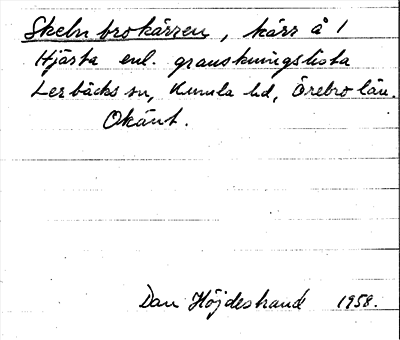 Skelnbrokärren, kärr å 1
Hjärta enl. granskningslista
Lerbäcks sn, Kumla hd, Örebro län.
Okänt.
Dan Höjdestrand 1958.